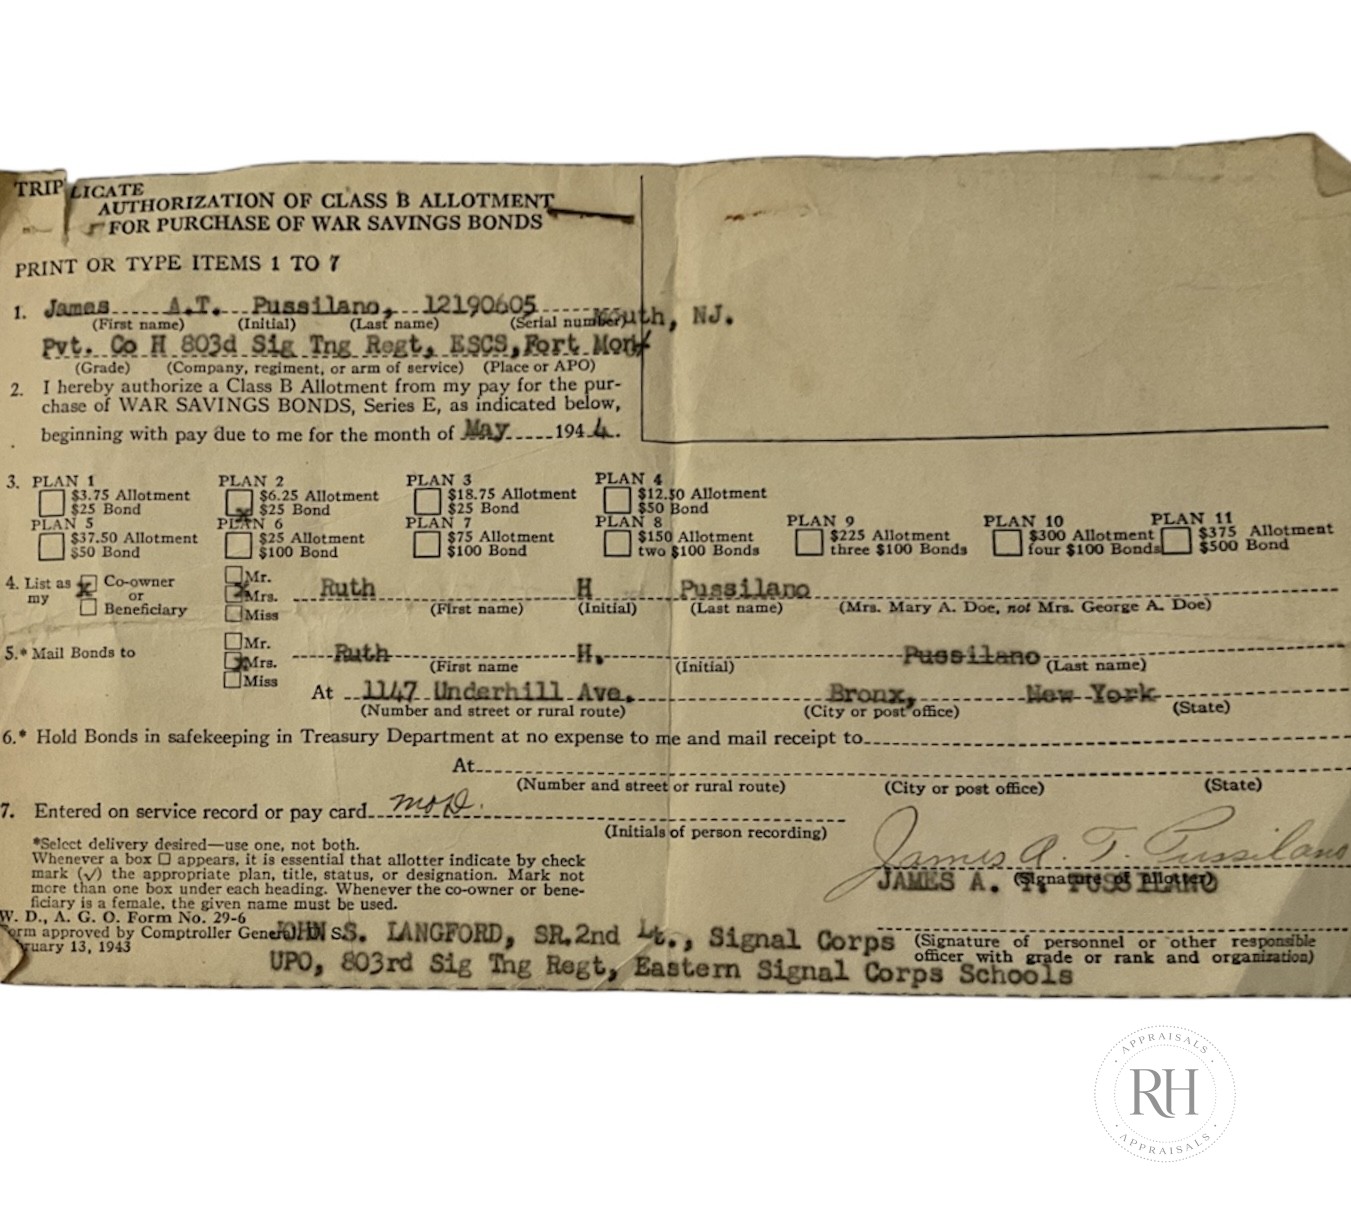 TRIPLICATE
AUTHORIZATION OF CLASS B ALLOTMENT
FOR PURCHASE OF WAR SAVINGS BONDS
PRINT OR TYPE ITEMS 1 TO 7
1. James A.T. Pussilano, 12190605
(First name) (Initial) (Last name) (Serial number)
mouth, NJ.
Pvt. Co H 803d Sig Tng Regt, ESCS, Fort Mon
(Grade) (Company, regiment, or arm of service) (Place or APO)
2. I hereby authorize a Class B Allotment from my pay for the pur-
chase of WAR SAVINGS BONDS, Series E, as indicated below,
beginning with pay due to me for the month of May 1944.
3. PLAN 1 PLAN 2 PLAN 3 PLAN 4
$3.75 Allotment $6.25 Allotment $18.75 Allotment $12.50 Allotment
$25 Bond x $25 Bond $25 Bond $50 Bond
PLAN 5 PLAN 6 PLAN 7 PLAN 8 PLAN 9 PLAN 10 PLAN 11
$37.50 Allotment $25 Allotment $75 Allotment $150 Allotment $225 Allotment $300 Allotment $375 Allotment
$50 Bond $100 Bond $100 Bond two $100 Bonds three $100 Bonds four $100 Bonds $500 Bond
4. List as my x Co-owner or Beneficiary
Mr.
x Mrs. Ruth H Pussilano
Miss (First name) (Initial) (Last name) (Mrs. Mary A. Doe, not Mrs. George A. Doe)
5.* Mail Bonds to
Mr.
x Mrs. Ruth H. Pussilano
Miss (First name (Initial) (Last name)
At 1147 Underhill Ave. Bronx, New York
(Number and street or rural route) (City or post office) (State)
6.* Hold Bonds in safekeeping in Treasury Department at no expense to me and mail receipt to
At
(Number and street or rural route) (City or post office) (State)
7. Entered on service record or pay card
(Initials of person recording)
*Select delivery desired—use one, not both.
Whenever a box □ appears, it is essential that allotter indicate by check
mark (✓) the appropriate plan, title, status, or designation. Mark not
more than one box under each heading. Whenever the co-owner or bene-
ficiary is a female, the given name must be used.
James A. T. Pussilano
JAMES A. T. PUSSILANO
(Signature of allotter)
W. D., A. G. O. Form No. 29-6
Form approved by Comptroller General
February 13, 1943
JOHN S. LANGFORD, SR. 2nd Lt., Signal Corps
UPO, 803rd Sig Tng Regt, Eastern Signal Corps Schools
(Signature of personnel or other responsible
officer with grade or rank and organization)
APPRAISALS
RH
APPRAISALS